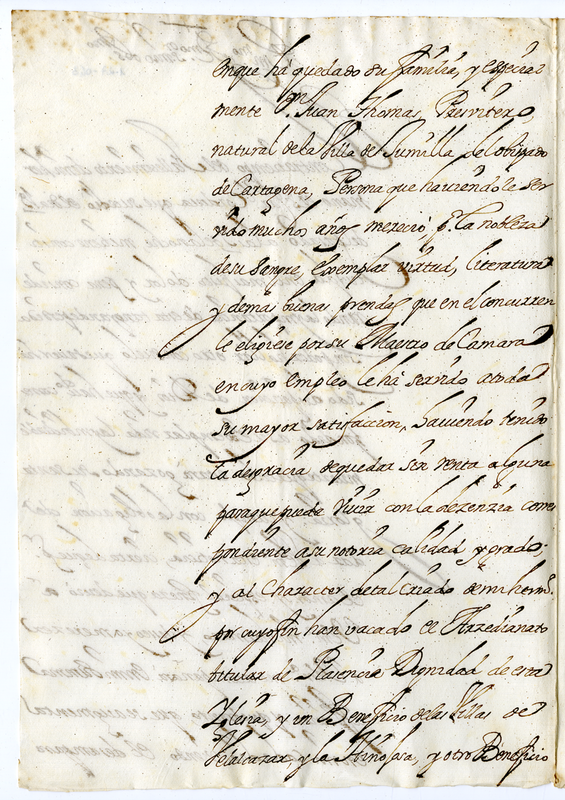 enque ha quedado su familia, y especial
mente Dn. Juan Thomas, Presvitero,
natural de la Villa de Jumilla del obispado
de Cartagena, Persona que haviendole ser
vido muchos años merecio, pr. la nobleza
de su sangre, exemplar virtud, literatura
y demas buenas prendas que en el concurren
le eligiese por su Maestro de Camara
en cuyo empleo le há servido a toda
su mayor satisfaccion, haviendo tenido
la desgracia de quedar sin renta alguna
para que puede vivir con la dezenzia corres
pondiente a su notoria calidad y grado,
y al Character de tal criado de mi hermo.
por cuyo fin han vacado el Arzedianato
titular de Plasencia Dignidad de esta
Yglesia, y un Beneficio de las Villas de
Velalcazar, y la Hinojosa, y otro Beneficio